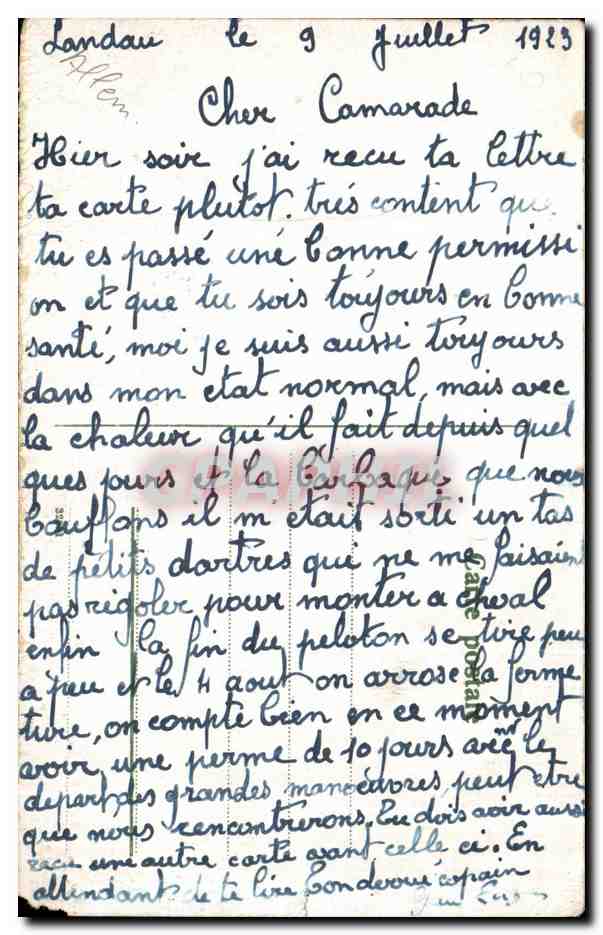 Landau le 9 Juillet 1923
Allem.
Cher Camarade
Hier soir j'ai recu ta lettre
ta carte plutot. trés content que
tu es passé uné bonne permissi
on et que tu sois toujours en bonne
santé, moi je suis aussi toujours
dans mon etat normal, mais avec
la chaleur qu'il fait depuis quel
ques jours et la barbaque que nous
bouffons il m'etait sorti un tas
de petits dartres qui ne me faisaient
pas rigoler pour monter a cheval
enfin la fin du peloton se tire peu
a peu et le 4 aout on arrose la ferme
ture, on compte bien en ce moment
avoir une perme de 10 jours avant le
depart des grandes manoeuvres, peut etre
que nous rencontrerons. Tu dois avoir aussi
recu une autre carte avant celle ci. En
attendant de te lire ton devoué copain
Carte postale